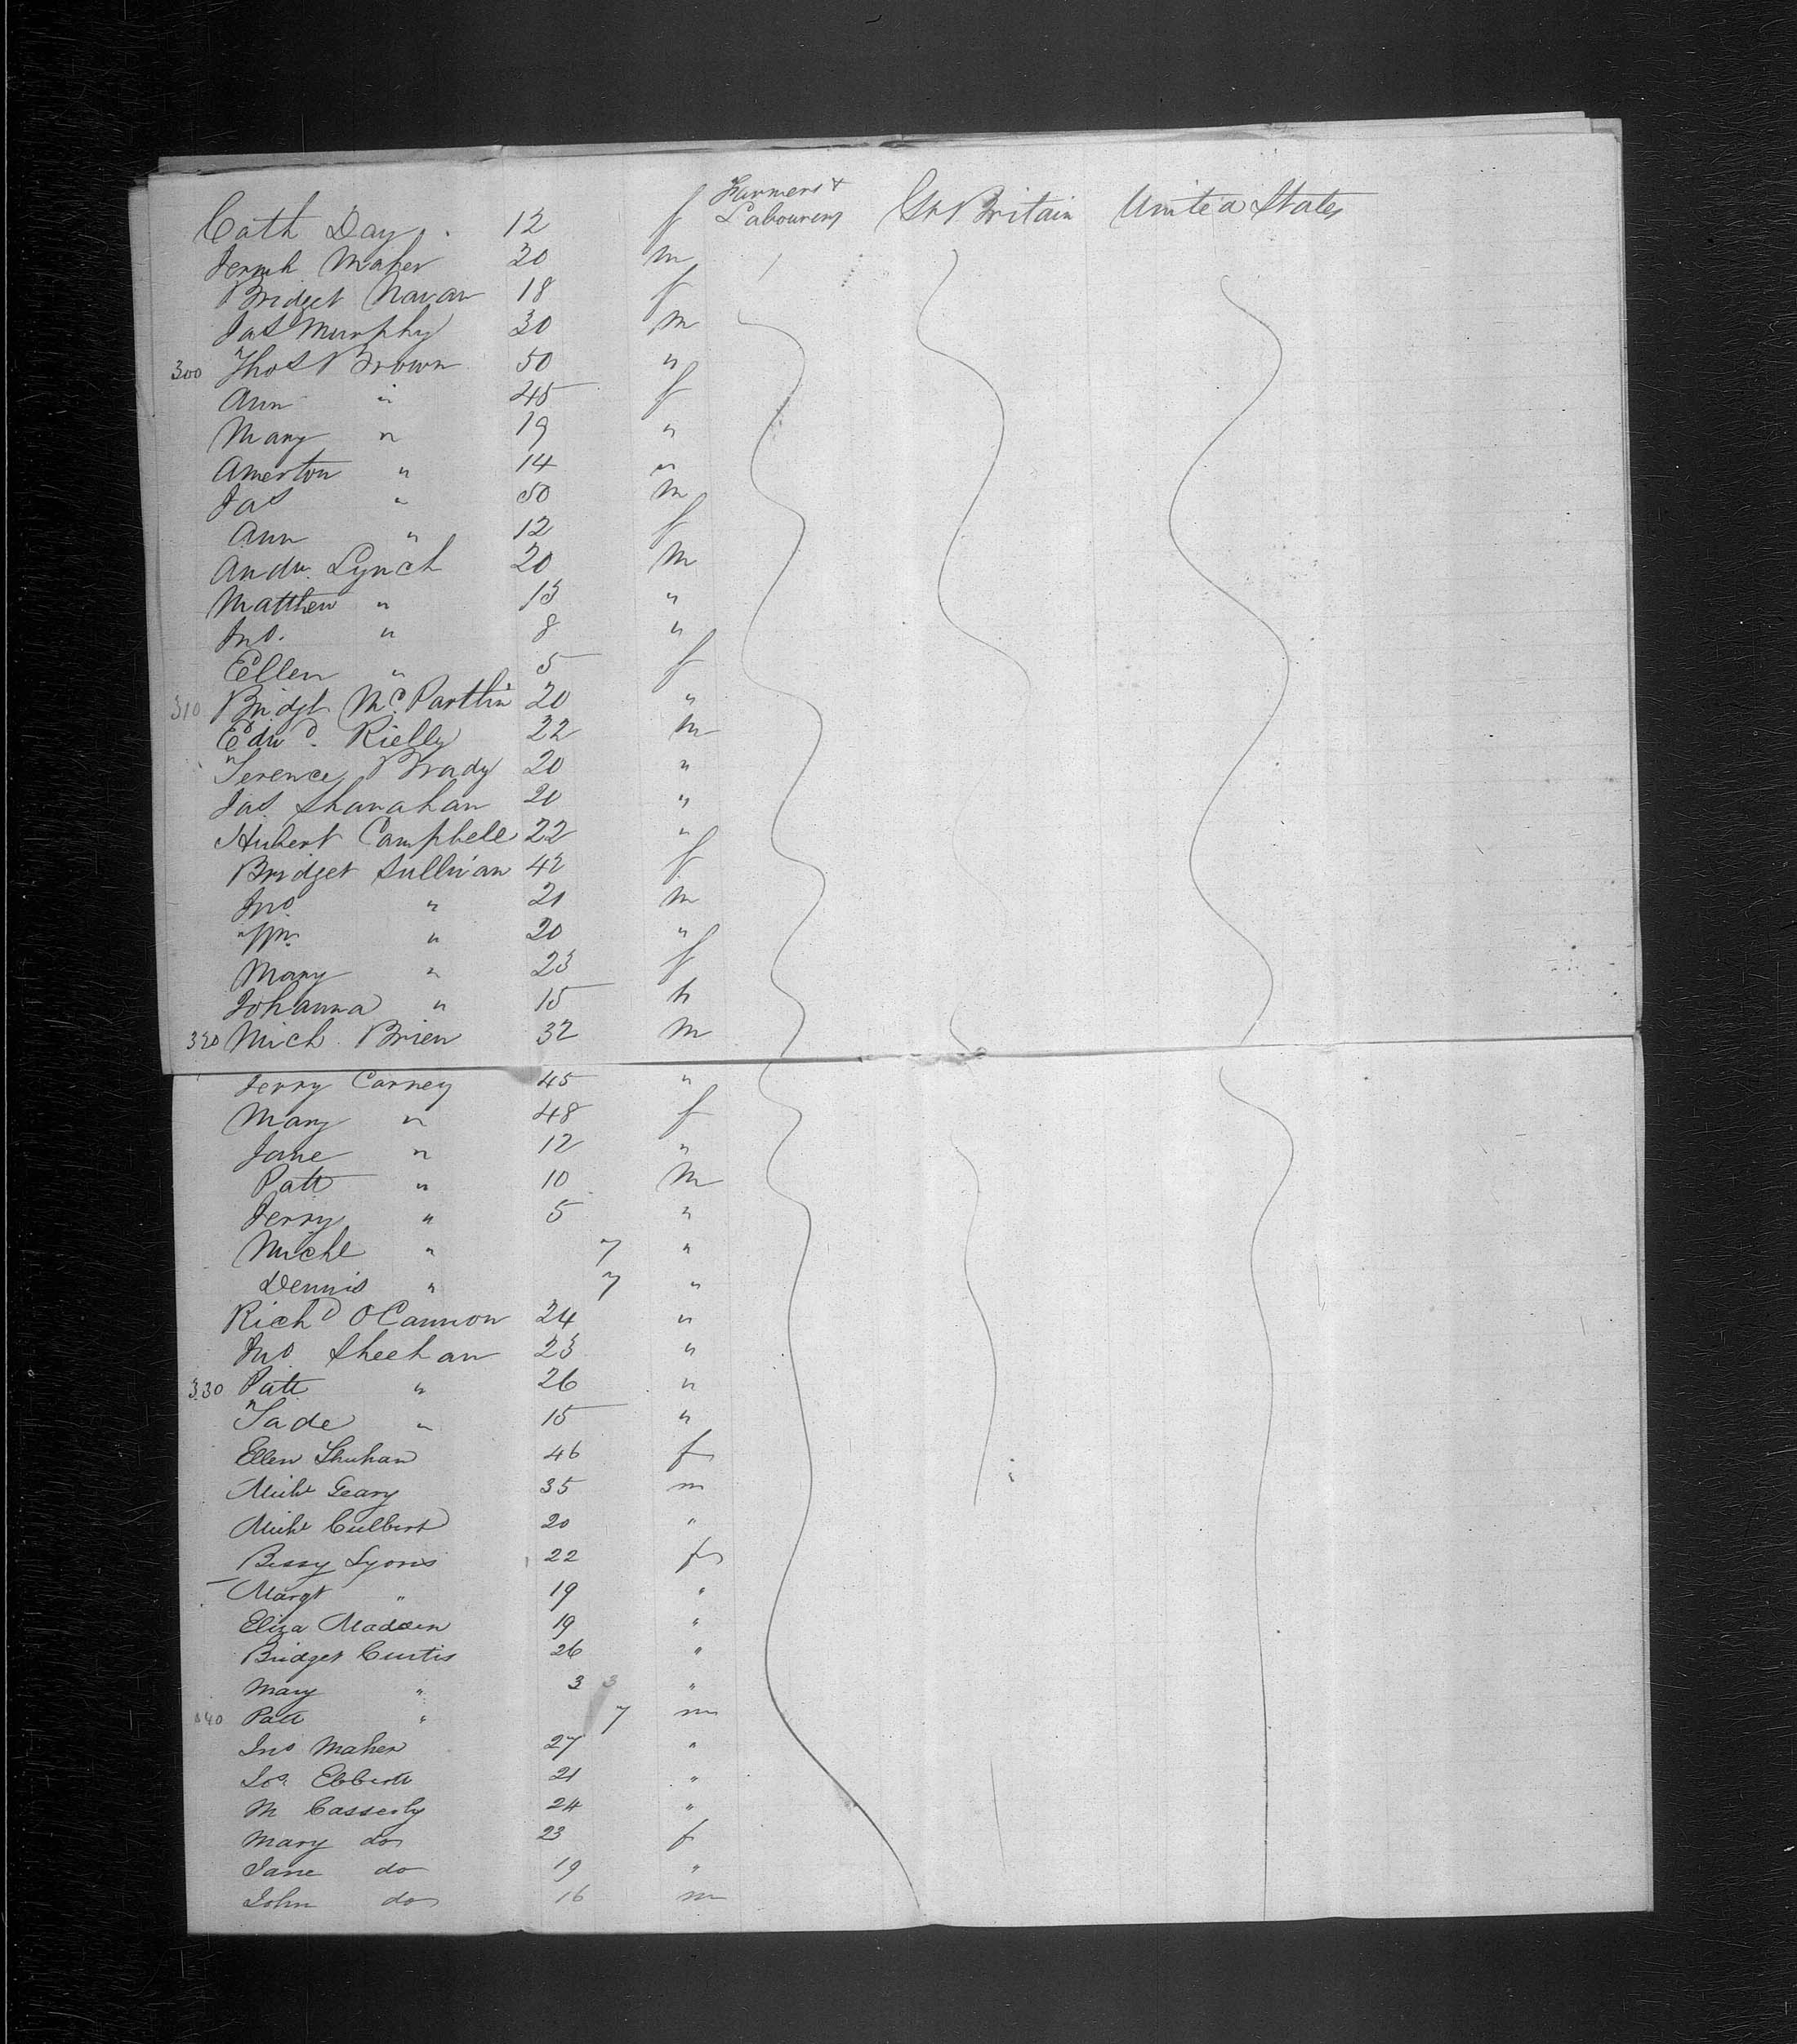 Farmers +
Cath Day . 12 f Labourers Gt Britain United States
Jermh Maher 20 m
Bridget Navan 18 f
Jas Murphy 30 m
300 Thos Brown 50 "
Ann " 45 f
Mary " 19 "
Amerton " 14 "
Jas " 50 m
Ann " 12 f
Andw. Lynch 20 m
Matthew " 13 "
Jno. " 8 "
Ellen " 5 f
310 Bridgt McPartlin 20 "
Edwd. Rielly 22 m
Terence Brady 20 "
Jas. Shanahan 20 "
Hubert Campbell 22 "
Bridget Sullivan 42 f
Jno " 21 m
Wm " 20 "
Mary " 23 f
Johanna " 15 "
320 Mich. Brien 32 m
Jerry Carney 45 "
Mary " 48 f
Jane " 12 "
Patt " 10 m
Jerry " 5 "
Michl " 7 "
Dennis " 7 "
Richd O Cannon 24 "
Jno Sheehan 23 "
330 Patt " 26 "
Tade " 15 "
Ellen Shuhan 46 f
Michl Geary 35 m
Michl Culbert 20 "
Bessy Lyons 22 f
Margt " 19 "
Eliza Madden 19 "
Bridget Curtis 26 "
Mary " 3 3 "
340 Patt " 7 m
Jno Maher 27 "
Jos Ebbertt 21 "
M Casserly 24 "
Mary do 23 f
Jane do 19 "
John do 16 m